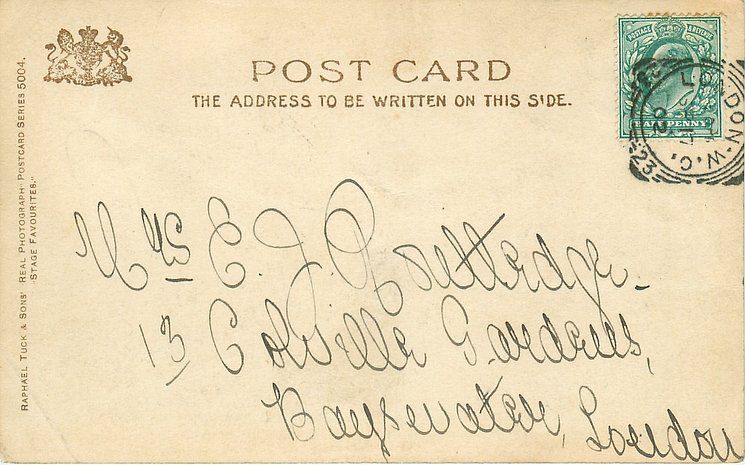 POST CARD
THE ADDRESS TO BE WRITTEN ON THIS SIDE.
POSTAGE & REVENUE
HALFPENNY
LONDON. W.C.
23
RAPHAEL TUCK & SONS' REAL PHOTOGRAPH POSTCARD SERIES 5004.
"STAGE FAVOURITES."
Mrs E. J. Routledge
13 Colville Gardens,
Bayswater, London